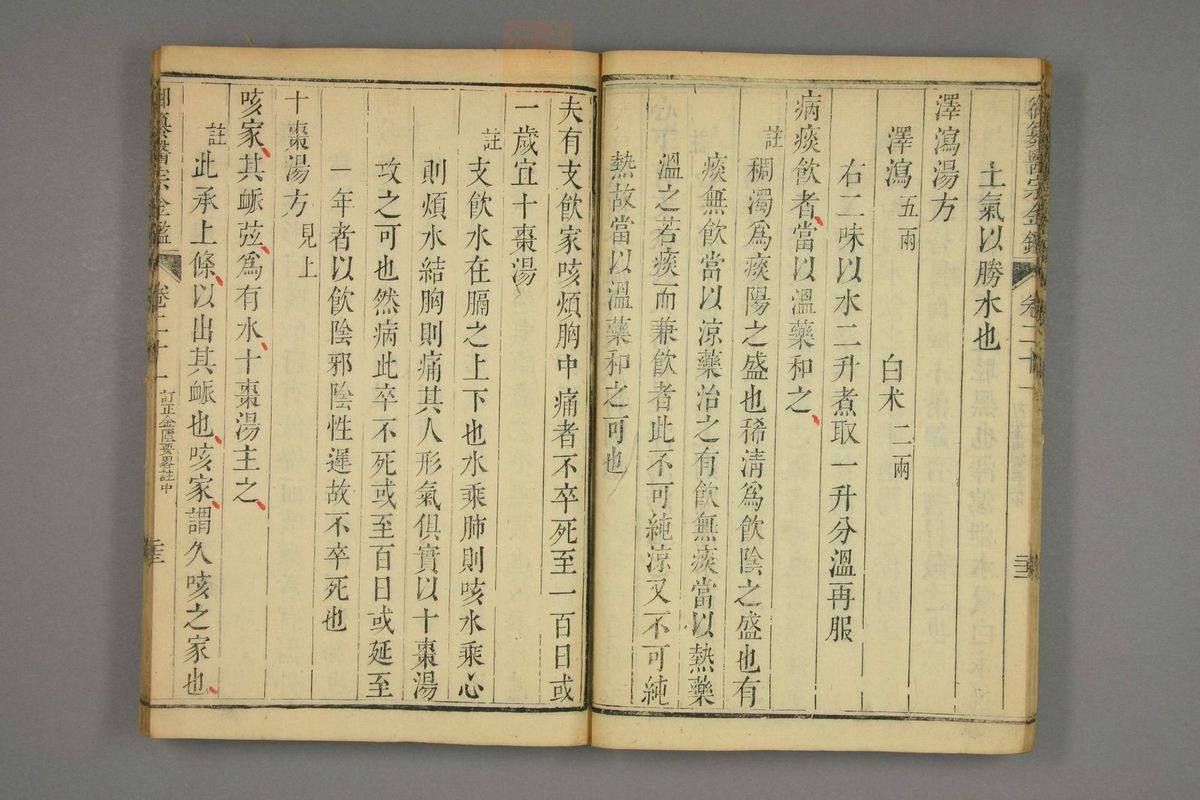 御纂醫宗金鑑 卷二十一
土氣以勝水也
澤瀉湯方
澤瀉五兩 白朮二兩
右二味以水二升煮取一升分溫再服
病痰飲者當以溫藥和之
註 稠濁爲痰陽之盛也稀淸爲飮陰之盛也有
痰無飮當以涼藥治之有飮無痰當以熱藥
溫之若痰而兼飮者此不可純涼又不可純
熱故當以溫藥和之可也
夫有支飮家咳煩胸中痛者不卒死至一百日或
一歲宜十棗湯
註 支飮水在膈之上下也水乘肺則咳水乘心
則煩水結胸則痛其人形氣俱實以十棗湯
攻之可也然病此卒不死或至百日或延至
一年者以飮陰邪陰性遲故不卒死也
十棗湯方 見上
咳家其脈弦爲有水十棗湯主之
註 此承上條以出其脈也咳家謂久咳之家也
御纂醫宗金鑑 卷二十一 訂正金匱要畧註中